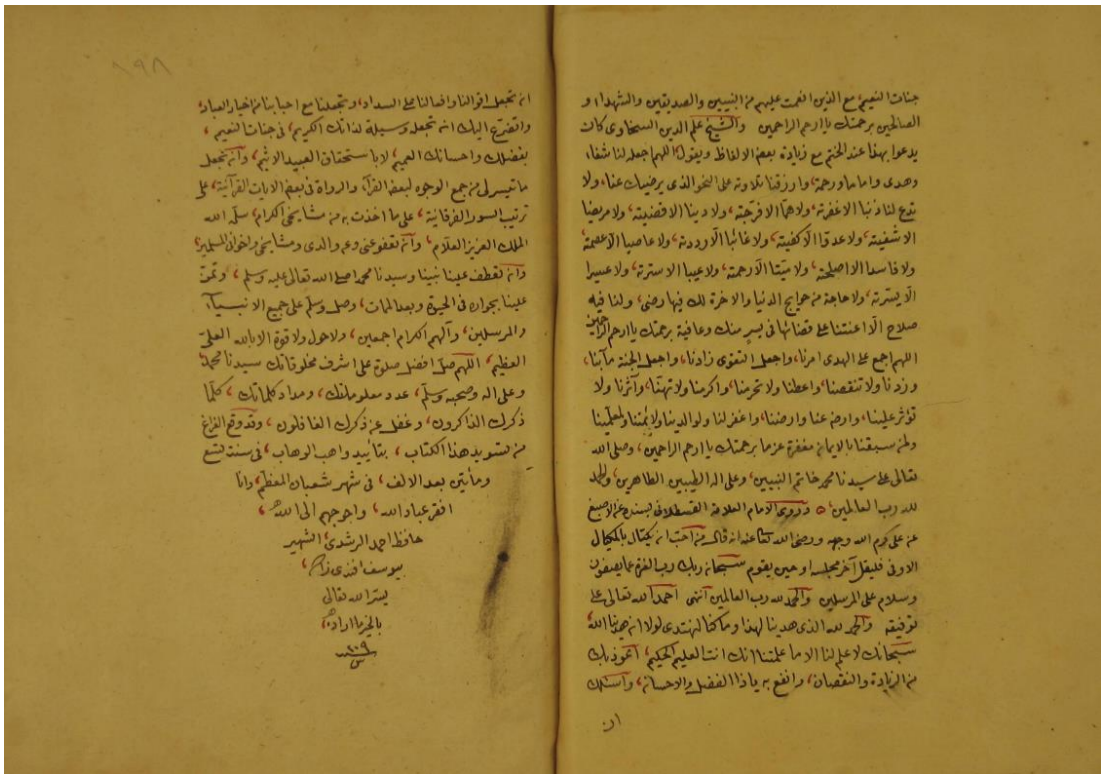 جنات النعيم، مع الذين انعمت عليهم من النبيين والصديقين والشهداء و
الصالحين برحمتك يا ارحم الراحمين والشيخ علم الدين السخاوى كان
يدعوا بهذا عند الختم مع زيادة بعض الالفاظ ويقول اللهم اجعله لنا شفاء
وهدى واماما ورحمة، وارزقنا تلاوته على النحو الذى يرضيك عنا، ولا
تدع لنا ذنبا الا غفرته، ولا همّا الا فرجته، ولا دينا الا قضيته، ولا مريضا
الا شفيته، ولا عدوّا الا كفيته، ولا غائبا الا رددته، ولا عاصيا الا عصمته
ولا فاسدا الا اصلحته، ولا ميّتا الا رحمته، ولا عيبا الا سترته، ولا عسيرا
الا يسرته، ولا حاجة من حوايج الدنيا والاخرة لك فيها رضى، ولنا فيه
صلاح الا اعنتنا على قضائها فى يسر منك وعافية برحمتك يا ارحم الراحمين
اللهم اجمع على الهدى امرنا، واجعل التقوى زادنا، واجعل الجنة مآبنا،
وزدنا ولا تنقصنا، واعطنا ولا تحرمنا، واكرمنا ولا تهنّا، وآثرنا ولا
تؤثر علينا، وارض عنا وارضنا، واغفر لنا ولوالدينا ولائمتنا ولمعلّمينا
ولمن سبقنا بالايمان مغفرة عزما برحمتك يا ارحم الراحمين، وصلى الله
تعالى على سيدنا محمد خاتم النبيين، وعلى اله الطيبين الطاهرين، والحمد
لله رب العالمين، وروى الامام العلامة القسطلانى بسنده عن الاصبغ
عن على كرم الله وجهه ورضى الله تعالى عنه انه قال من احب ان يكتال بالمكيال
الاوفى فليقل آخر مجلسه او حين يقوم سبحان ربك رب العزة عما يصفون
وسلام على المرسلين والحمد لله رب العالمين انتهى احمد الله تعالى على
توفيقه والحمد لله الذى هدينا لهذا وما كنا لنهتدى لولا ان هدينا الله
سبحانك لا علم لنا الا ما علمتنا انك انت العليم الحكيم، اعوذ بك
من الزيادة والنقصان، وانفع به يا ذا الفضل والاحسان، واسئلك
ان
٨٩٨
ان تجعل اقوالنا وافعالنا على السداد، وتجعلنا مع احبابنا من اخيار العباد،
واتضرع اليك ان تجعله وسيلة لذاتك الكريم، فى جنات النعيم،
بفضلك واحسانك العميم، لا باستحقاق العبيد الاثيم، وان تجعل
ما تيسر لى من جمع الوجوه لبعض القرآء والرواة فى بعض الايات القرآنية، على
ترتيب السور الفرقانية، على ما اخذت به من مشايخى الكرام، سلّمه الله
الملك العزيز العلّام، وان تعفو عنى وعن والدى ومشايخى واخوانى المسلمين،
وان تعطف علينا نبينا وسيدنا محمد صلى الله تعالى عليه وسلم، وتمنّ
علينا بجواره فى الحيوة وبعد الممات، وصل وسلم على جميع الانبيآء
والمرسلين، وآلهم الكرام اجمعين، ولا حول ولا قوة الا بالله العلىّ
العظيم، اللهم صلّ افضل صلوة على اشرف مخلوقاتك سيدنا محمد
وعلى اله وصحبه وسلّم، عدد معلوماتك، ومداد كلماتك، كلّما
ذكرك الذاكرون، وغفل عن ذكرك الغافلون، وقد وقع الفراغ
من تسويد هذا الكتاب، بتائيد واهب الوهاب، فى سنة تسع
ومأتين بعد الالف، فى شهر شعبان المعظم، وانا
افقر عباد الله، واحوجهم الى الله،
حافظ احمد الرشدى، الشهير
بيوسف افندى زاده،
يسر الله تعالى
بالخير ما اراده
سنه